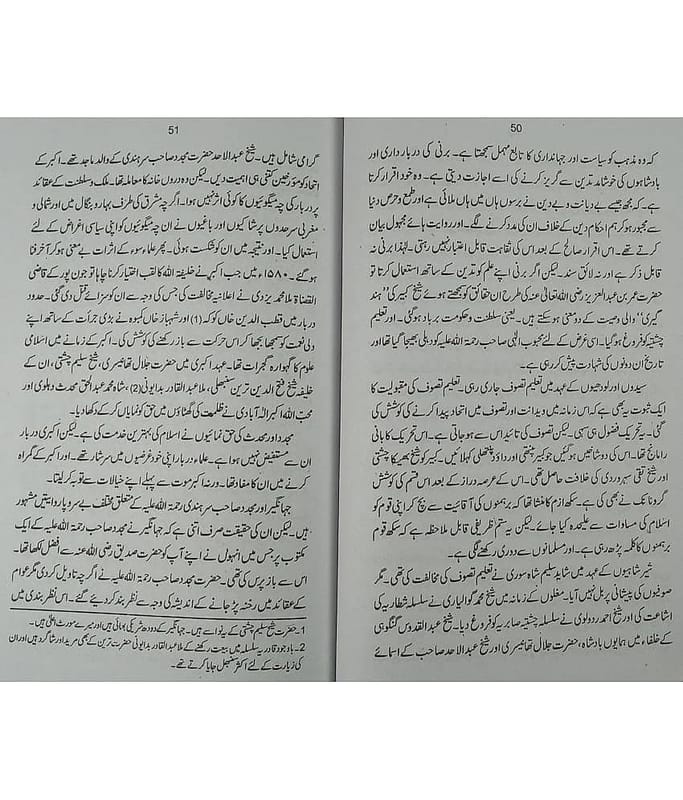 50
کہ وہ مذہب کو سیاست اور جہانداری کا تابع مہمل سمجھتا ہے۔ برنی کی دربار داری اور
بادشاہوں کی خوشامد تدین سے گریز کرنے کی اسے اجازت دیتی ہے۔ وہ خود اقرار کرتا
ہے۔ کہ مجھ جیسے بے دیانت و بے دین نے برسوں ہاں میں ہاں ملائی ہے اور طمع و حرص دنیا
سے مجبور ہو کر ہم احکام دین کے خلاف ان کی مدد کرنے لگے۔ اور روایت ہائے مجہول بیان
کرتے تھے۔ اس اقرار صالح کے بعد اس کی نقاہت قابل اعتبار نہیں رہتی۔ لہذا برنی نہ
قابل ذکر ہے اور نہ لائق سند۔ لیکن اگر برنی اپنے علم کو تدین کے ساتھ استعمال کرتا تو
حضرت عمر بن عبدالعزیز رضی اللہ تعالی عنہ کی طرح ان حقائق کو سمجھتے ہوئے شیخ کبیر کی ”ہند
گیری“ والی وصیت کے دو معنی ہو سکتے ہیں۔ یعنی سلطنت و حکومت برباد ہو گئی۔ اور تعلیم
چشتیہ کو فروغ ہو گیا۔ اسی غرض کے لئے محبوب الٰہی صاحب رحمۃ اللہ علیہ کو دہلی بھیجا گیا تھا اور
تاریخ ان دونوں کی شہادت پیش کر رہی ہے۔
سیدوں اور لودھیوں کے عہد میں تعلیم تصوف جاری رہی۔ تعلیم تصوف کی مقبولیت کا
ایک ثبوت یہ بھی ہے کہ اس زمانہ میں ویدانت اور تصوف میں اتحاد پیدا کرنے کی کوشش کی
گئی۔ یہ تحریک فضول ہی سہی۔ لیکن تصوف کی تائید اس سے ہو جاتی ہے۔ اس تحریک کا بانی
رامانج تھا۔ اس کی دو شاخیں ہو گئیں جو کبیر پنتھی اور داؤد پنتھی کہلائیں۔ کبیر کو شیخ بھیکا چشتی
و شیخ تقی سہروردی کی خلافت حاصل تھی۔ اس کے عرصہ دراز کے بعد اس قسم کی کوشش
گرو نانک نے بھی کی ہے۔ سکھ ازم کا منشا تھا کہ برہمنوں کی آقائیت سے بچ کر اپنی قوم کو
اسلام کی مساوات سے علیحدہ کیا جائے۔ لیکن یہ ستم ظریفی قابل ملاحظہ ہے کہ سکھ قوم
برہمنوں کا کلمہ پڑھ رہی ہے۔ اور مسلمانوں سے دوری رکھنے لگی ہے۔
شیر شاہیوں کے عہد میں شاید سلیم شاہ سوری نے تعلیم تصوف کی مخالفت کی تھی۔ مگر
صوفیوں کی پیشانی پر بل نہیں آیا۔ مغلوں کے زمانہ میں شیخ محمد گوالیاری نے سلسلہ شطاریہ کی
اشاعت کی اور شیخ احمد ردولوی نے سلسلہ چشتیہ صابریہ کو فروغ دیا۔ شیخ عبدالقدوس گنگوہی
کے خلفاء میں ہمایوں بادشاہ، حضرت جلال تھانیسری اور شیخ عبدالاحد صاحب کے اسمائے
51
گرامی شامل ہیں۔ شیخ عبدالاحد حضرت مجدد صاحب سرہندی کے والد ماجد تھے۔ اکبر کے
اتحاد کو مؤرخین کتنی ہی اہمیت دیں۔ لیکن وہ درون خانہ کا معاملہ تھا۔ ملک و سلطنت کے عقائد
پر دربار کی چہ میگوئیوں کا کوئی اثر نہیں ہوا۔ اگرچہ شرق کی طرف بہار و بنگال میں اور شمالی و
مغربی سرحدوں پر شاکیوں اور باغیوں نے ان چہ میگوئیوں کو اپنی سیاسی اغراض کے لئے
استعمال کیا۔ اور نتیجہ میں ان کو شکست ہوئی۔ پھر علماء سوء کے اثرات بے معنی ہو کر آخر فنا
ہو گئے۔ ۱۵۸۰ء میں جب اکبر نے خلیفۃ اللہ کا لقب اختیار کرنا چاہا تو جون پور کے قاضی
القضاۃ ملا محمد یزدی نے اعلانیہ مخالفت کی جس کی وجہ سے ان کو سزائے قتل دی گئی۔ حدود
دربار میں قطب الدین خاں کو کہ (1) اور شہباز خاں کمبوہ نے بڑی جرأت کے ساتھ اپنے
ولی نعمت کو سمجھا بجھا کر اس حرکت سے باز رکھنے کی کوشش کی۔ اکبر کے زمانہ میں اسلامی
علوم کا گہوارہ گجرات تھا۔ عہد اکبری میں حضرت جلال تھانیسری، شیخ سلیم چشتی، ان کے
خلیفہ شیخ فتح الدین ترین سنبھلی، ملا عبدالقادر بدایونی (2)، شاہ محمد عبدالحق محدث دہلوی اور
محب اللہ اکبر الٰہ آبادی نے ظلمت کی گھٹاؤں میں حق کو نمایاں کر کے دکھا دیا۔
مجدد اور محدث کی حق نمائیوں نے اسلام کی بہترین خدمت کی ہے۔ لیکن اکبری دربار
ان سے مستفیض نہیں ہوا ہے۔ علماء دربار اپنی خود غرضیوں میں سرشار تھے۔ اور اکبر کے گمراہ
کرنے میں ان کا مفاد تھا۔ ورنہ اکبر موت سے پہلے اپنے خیالات سے توبہ کر لیتا۔
جہانگیر اور مجدد صاحب سرہندی رحمۃ اللہ علیہ کے متعلق مختلف بے سروپا روایتیں مشہور
ہیں۔ لیکن ان کی حقیقت صرف اتنی ہے کہ جہانگیر نے مجدد صاحب رحمۃ اللہ علیہ کے ایک
مکتوب پر جس میں انہوں نے اپنے آپ کو حضرت صدیق رضی اللہ عنہ سے افضل لکھا تھا۔
اس سے باز پرس کی تھی۔ حضرت مجدد صاحب رحمۃ اللہ علیہ نے اگرچہ تاویل کر دی مگر عوام
کے عقائد میں رخنہ پڑ جانے کے اندیشہ کی وجہ سے نظر بند کر دیئے گئے۔ اس نظر بندی میں
1۔ حضرت شیخ سلیم چشتی کے نواسے ہیں۔ جہانگیر کے دودھ شریکی بھائی ہیں اور میرے مورث اعلیٰ ہیں۔
2۔ باوجود قادریہ سلسلہ میں بیعت رکھنے کے ملا عبدالقادر بدایونی حضرت ترین کے بھی مرید اور شاگرد ہیں اور ان
کی زیارت کے لئے اکثر سنبھل جایا کرتے تھے۔